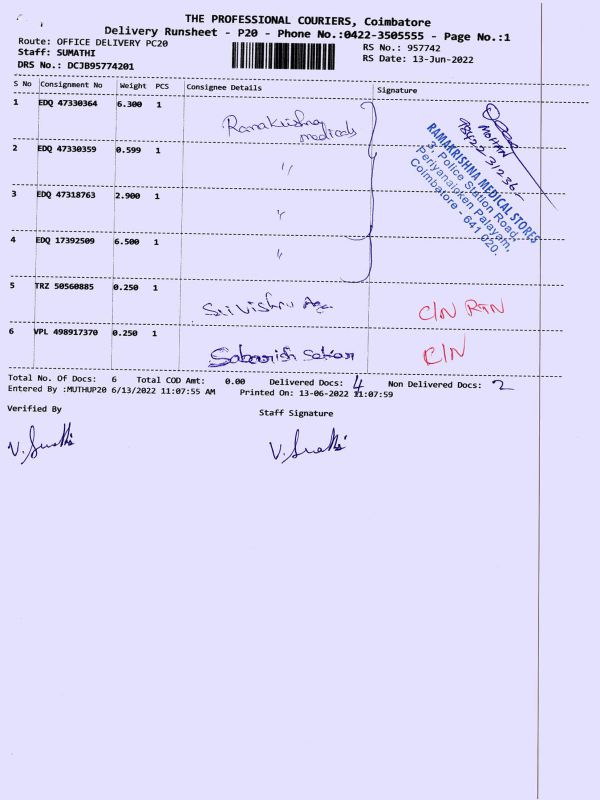 THE PROFESSIONAL COURIERS, Coimbatore
Delivery Runsheet - P20 - Phone No.:0422-3505555 - Page No.:1
Route: OFFICE DELIVERY PC20
RS No.: 957742
Staff: SUMATHI
RS Date: 13-Jun-2022
DRS No.: DCJB95774201
S No Consignment No Weight PCS Consignee Details Signature
1 EDQ 47330364 6.300 1 Ramakrishna medicals
2 EDQ 47330359 0.599 1 "
3 EDQ 47318763 2.900 1 "
4 EDQ 17392509 6.500 1 "
MOHAN
RAMAKRISHNA MEDICAL STORES
3, Police Station Road,
Periyanaicken Palayam,
Coimbatore - 641 020.
5 TRZ 50560885 0.250 1 Sri Vishnu C/N RTN
6 VPL 498917370 0.250 1 C/N
Total No. Of Docs: 6 Total COD Amt: 0.00 Delivered Docs: 4 Non Delivered Docs: 2
Entered By :MUTHUP20 6/13/2022 11:07:55 AM Printed On: 13-06-2022 11:07:59
Verified By Staff Signature